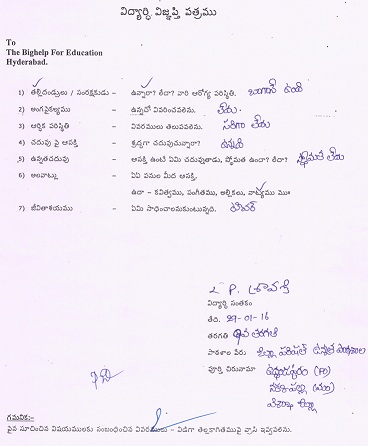 విద్యార్థి విజ్ఞప్తి పత్రము
To
The Bighelp For Education
Hyderabad.
1) తల్లిదండ్రులు / సంరక్షకుడు – ఉన్నారా? లేదా? వారి ఆరోగ్య పరిస్థితి.
2) అంగవైకల్యము – ఉన్నచో వివరించవలెను. లేదు.
3) ఆర్థిక పరిస్థితి – వివరములు తెలుపవలెను. సరిగా లేదు
4) చదువు పై ఆసక్తి – శ్రద్ధగా చదువుచున్నారా? ఉన్నది
5) ఉన్నతచదువు – ఆసక్తి ఉంటే ఏమి చదువుతాడు, స్తోమత ఉందా? లేదా? స్తోమత లేదు
6) అలవాట్లు – ఏఏ పనుల మీద ఆసక్తి.
ఉదా – కవిత్వము, సంగీతము, అల్లికలు, నాట్యము ము॥
7) జీవితాశయము – ఏమి సాధించాలనుకుంటున్నది. టీచర్
P. శ్రావణి
విద్యార్థి సంతకం
తేది. 29-01-16
తరగతి తరగతి
పాఠశాల పేరు జిల్లా పరిషత్ ఉన్నత పాఠశాల
పూర్తి చిరునామా
గమనిక:-
పైన సూచించిన విషయములకు సంబంధించిన వివరములు – విడిగా తెల్లకాగితముపై వ్రాసి ఇవ్వవలెను.